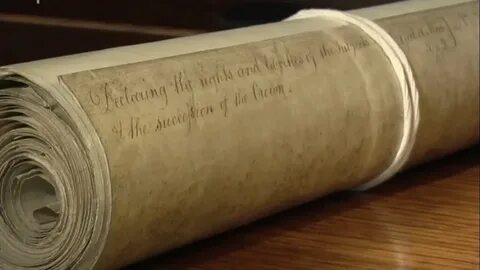 Declaring the rights and liberties of the subject
& the succession of the Crown.